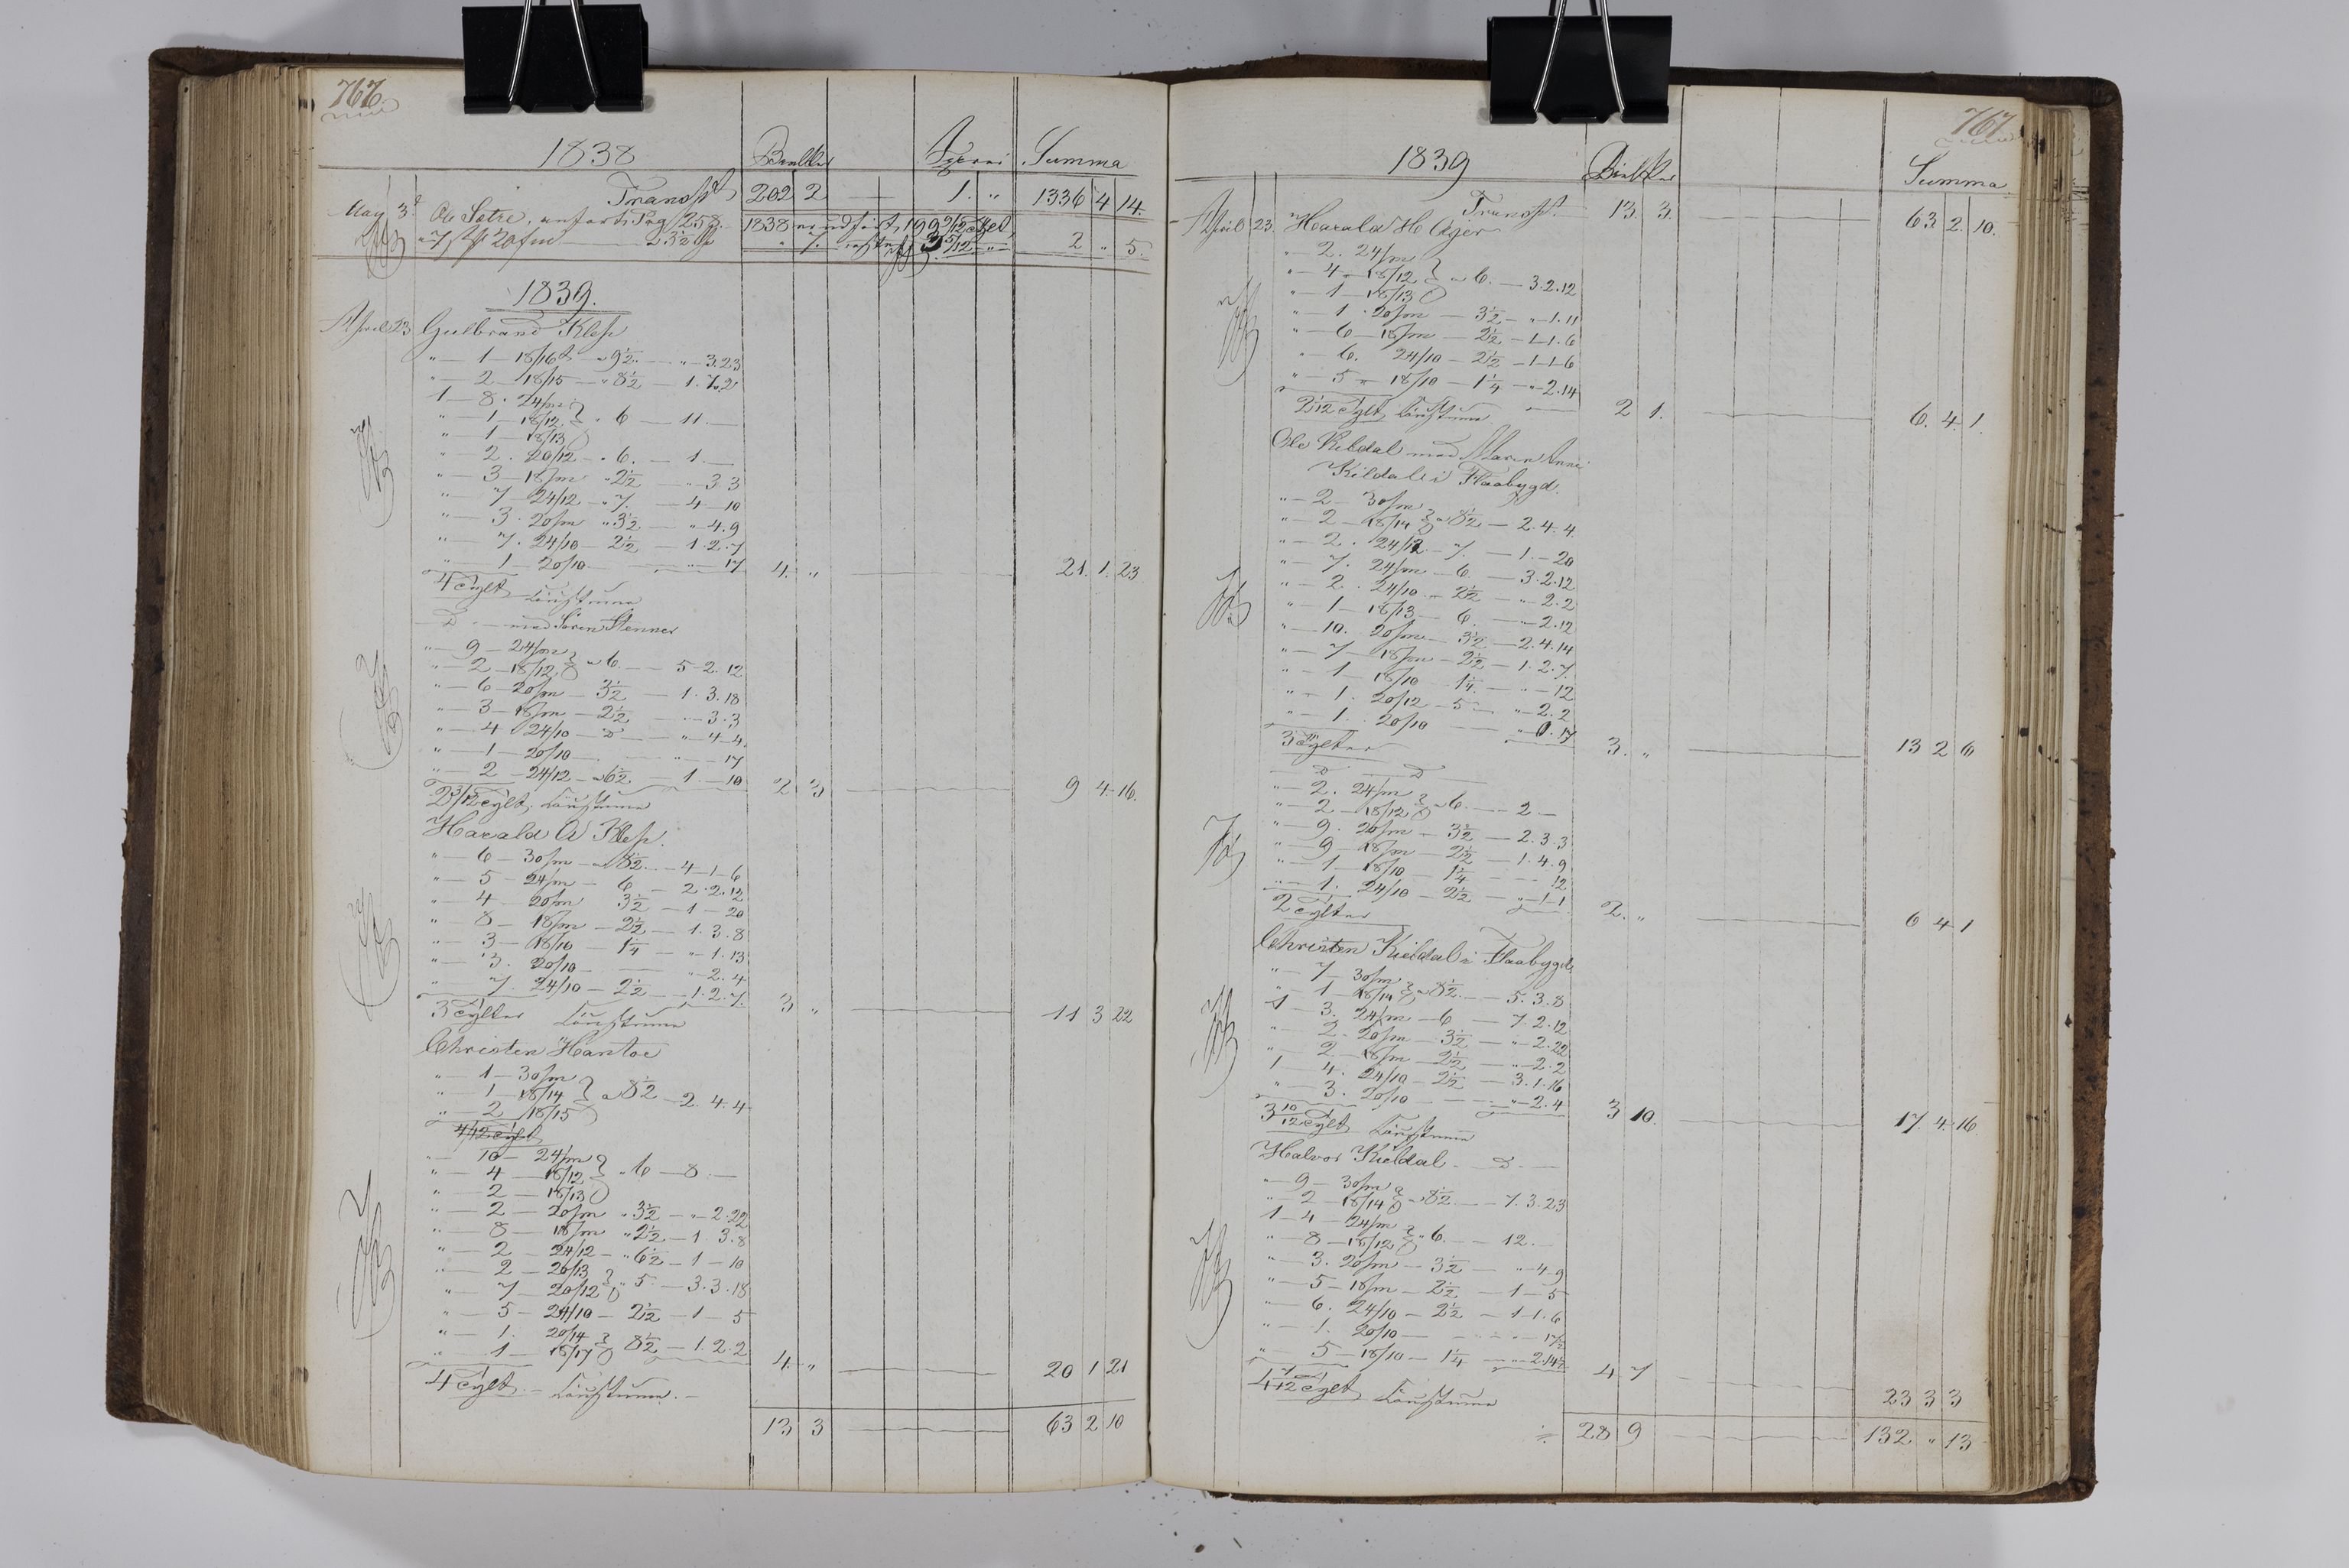 767
1838 Bielker Summa
Transpt 202 2 1. " 1336 4 14.
May 3 Ole Sætre, anført Pag 258
1838 199 9/12 Tylt
" 7 20fm 2 3½ 3 5/12 2 " 5.
1839.
April 23 Gulbrand Klep
" 1 18/16 a 9½ " 3.23
" 2 18/15 " 8½ 1.7.2
1 8. 24/m
" 1 18/12 " 6 11.
" 1 18/13
" 2. 20/12 " 6. 1.
" 3 18/m " 2½ " 3.3
" 7 24/12 " 7. 4 10
" 3. 20/m " 3½ " 4.9
" 7. 24/10 2½ 1.2.7
" 1 20/10 17 4. " 21. 1. 23
4 Tylt
D med Søren Stenner
" 9 24/m
" 2 18/12 a 6. 5.2.12
" 6 20/m 3½ 1.3.18
" 3 18/m 2½ " 3.3
" 4 24/10 D " 4.4.
" 1 20/10 17
" 2 24/12 a 6½. 1. 10 2 3 9 4 16.
2 3/12 Tylt
Harald A Klep.
" 6 30/m a 8½ 4.1.6
" 5 24/m 6 2.2.12
" 4 20/m 3½ 1 20
" 8 18/m 2½ 1.3.8
" 3 18/10 1¼ " 1.13
" 3. 20/10 " 2.4
" 7. 24/10 2½ 1.2.7. 3 " 11 3 22
3 Tylter
Christen Hantoe
" 1 30/m
" 1 18/14 a 8½ 2.4.4
" 2 18/15
4/12 Tylt
" 10 24/m
" 4 18/12 " 6 8.
" 2 18/13
" 2 20/m " 3½ " 2.22
" 8 18/m " 2½ 1 3.8
" 2 24/12 " 6½ 1 10
" 2 20/13
" 7 20/12 " 5. 3.3.18
" 5 24/10 2½ 1 5
" 1. 20/14
" 1 18/17 8½ 1.2.2 4. " 20 1 21
4 Tylt.
13 3 63 2 10
767
1839 Bielker Summa
Transpt. 13 3. 63 2. 10.
April 23. Harald H Ager
" 2. 24/m
" 4 18/12 a 6. 3.2.12
" 1 18/13
" 1. 20/m 3½ " 1.11
" 6 18/m 2½ 1.1.6
" 6. 24/10 2½ 1.1.6
" 5 18/10 1¼ " 2.14
2 1/12 Tylt 2 1. 6. 4. 1.
Ole Kildal med Maren Anne
Kildal i Flaabygd.
" 2 30/m
" 2 18/14 a 8½ 2.4.4.
" 2. 24/12 7. 1. 20
" 7. 24/m 6 3.2.12
" 2. 24/10 2½ " 2.2
" 1 18/13 6. " 2.12
" 10. 20/m 3½ 2.4.14
" 7 18/m 2½ 1.2.7.
" 1 18/10 1¼ " 12
" 1. 20/12 5 " 2.2
" 1. 20/10 " 0.17
3 Tylter 3. " 13 2 6
D D
" 2. 24/m
" 2 18/12 a 6 2
" 9. 20/m 3½ 2.3.3
" 9 18/m 2½ 1.4.9
" 1 18/10 1¼ 12
" 1. 24/10 2½ " 1.1
2 Tylter 2. " 6 4 1
Christen Kieldal i Flaabygd
" 7 30/m
" 1 18/14 a 8½ 5.3.8
1 3. 24/m 6 7.2.12
" 2. 20/m 3½ " 2.22
" 2 18/m 2½ " 2.2
1 4. 24/10 2½ 3.1.16
" 3. 20/10 " 2.4
3 10/12 Tylt 3 10. 17. 4. 16
Halvor Kieldal D
" 9 30/m
" 2 18/14 a 8½ 7.3.23
1 4 24/m
" 8 18/12 " 6. 12.
" 3. 20/m 3½ " 4.9
" 5 18/m 2½ 1 5
" 6. 24/10 2½ 1.1.6
" 1. 20/10 17½
" 5 18/10 1¼ " 2.14½
4 7/12 Tylt 4 7 23 3 3
28 9 132 " 13